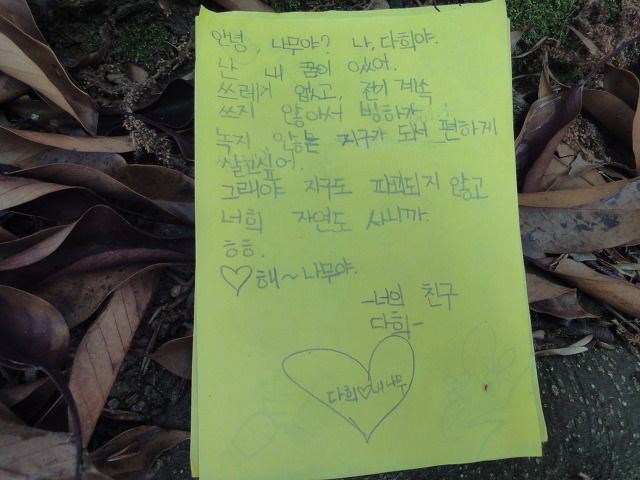 안녕, 나무야? 나, 다희야.
난 내 꿈이 있어.
쓰레기 없고, 전기 계속
쓰지 않아서 빙하가
녹지 않는 지구가 돼서 편하게
살고싶어.
그래야 지구도 파괴되지 않고
너희 자연도 사니까.
ㅎㅎ.
♡해~나무야.
-너의 친구
다희-
다희♡내나무